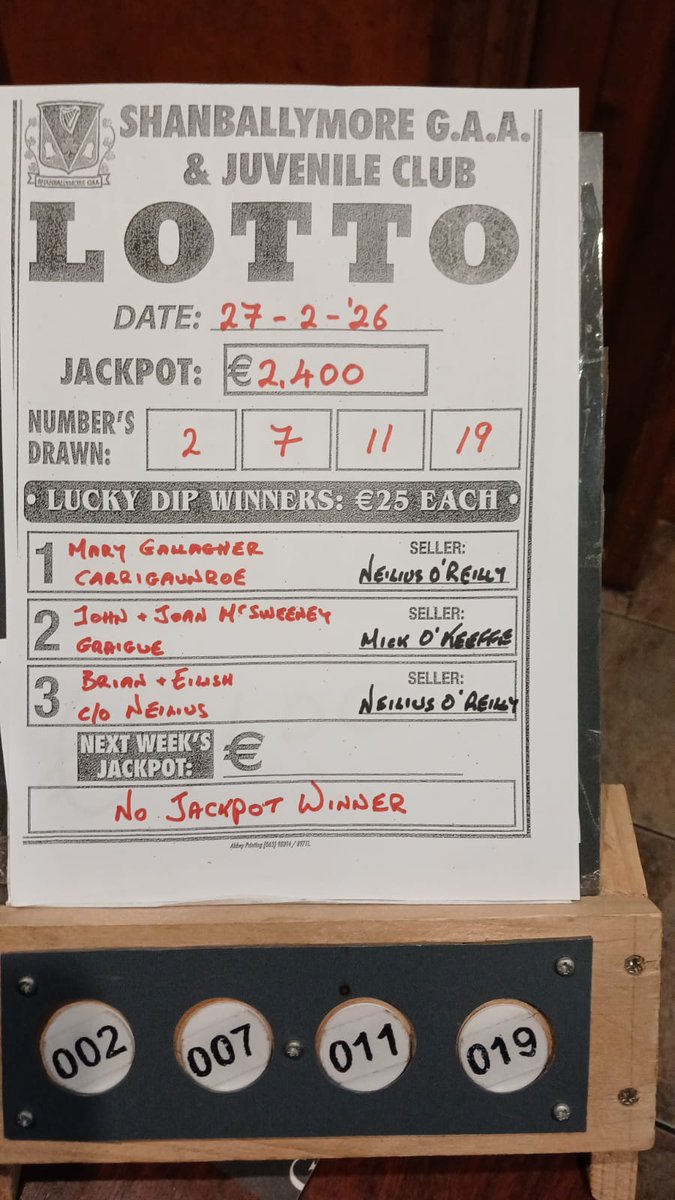 SHANBALLYMORE G.A.A.
& JUVENILE CLUB
SHANBALLYMORE GAA
LOTTO
DATE: 27-2-'26
JACKPOT: €2,400
NUMBER'S DRAWN: 2 7 11 19
• LUCKY DIP WINNERS: €25 EACH •
1 MARY GALLAGHER SELLER:
CARRIGAUNROE NEILIUS O'REILLY
2 JOHN + JOAN McSWEENEY SELLER:
GRAIGUE MICK O'KEEFFE
3 BRIAN + EILISH SELLER:
C/O NEILIUS NEILIUS O'REILLY
NEXT WEEK'S
JACKPOT: €
NO JACKPOT WINNER
Abbey Printing
002 007 011 019